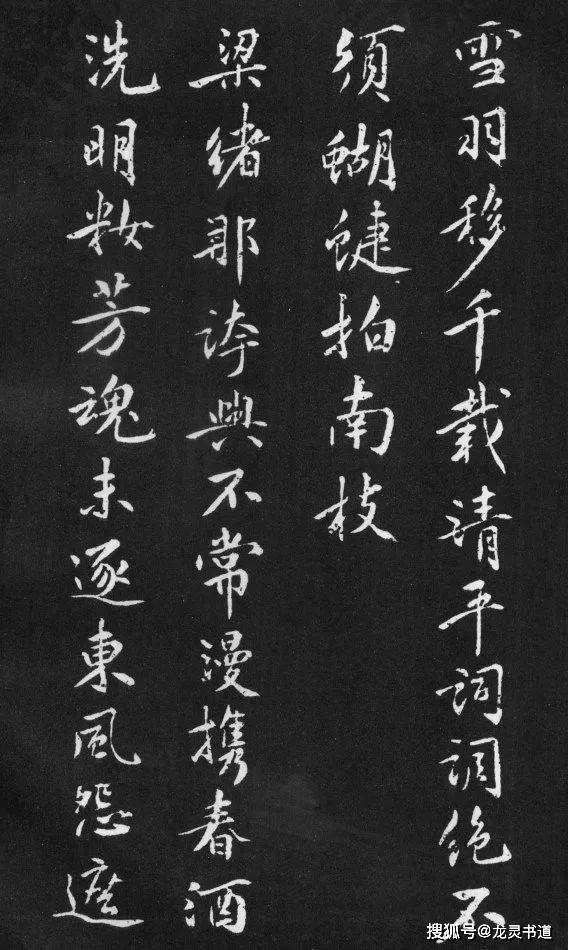 雪羽移千载清平词调绝不
须蝴蝶拍南枝
梁绪那誇興不常漫携春酒
洗明妝芳魂未逐東風怨遮
搜狐号@龙灵书道